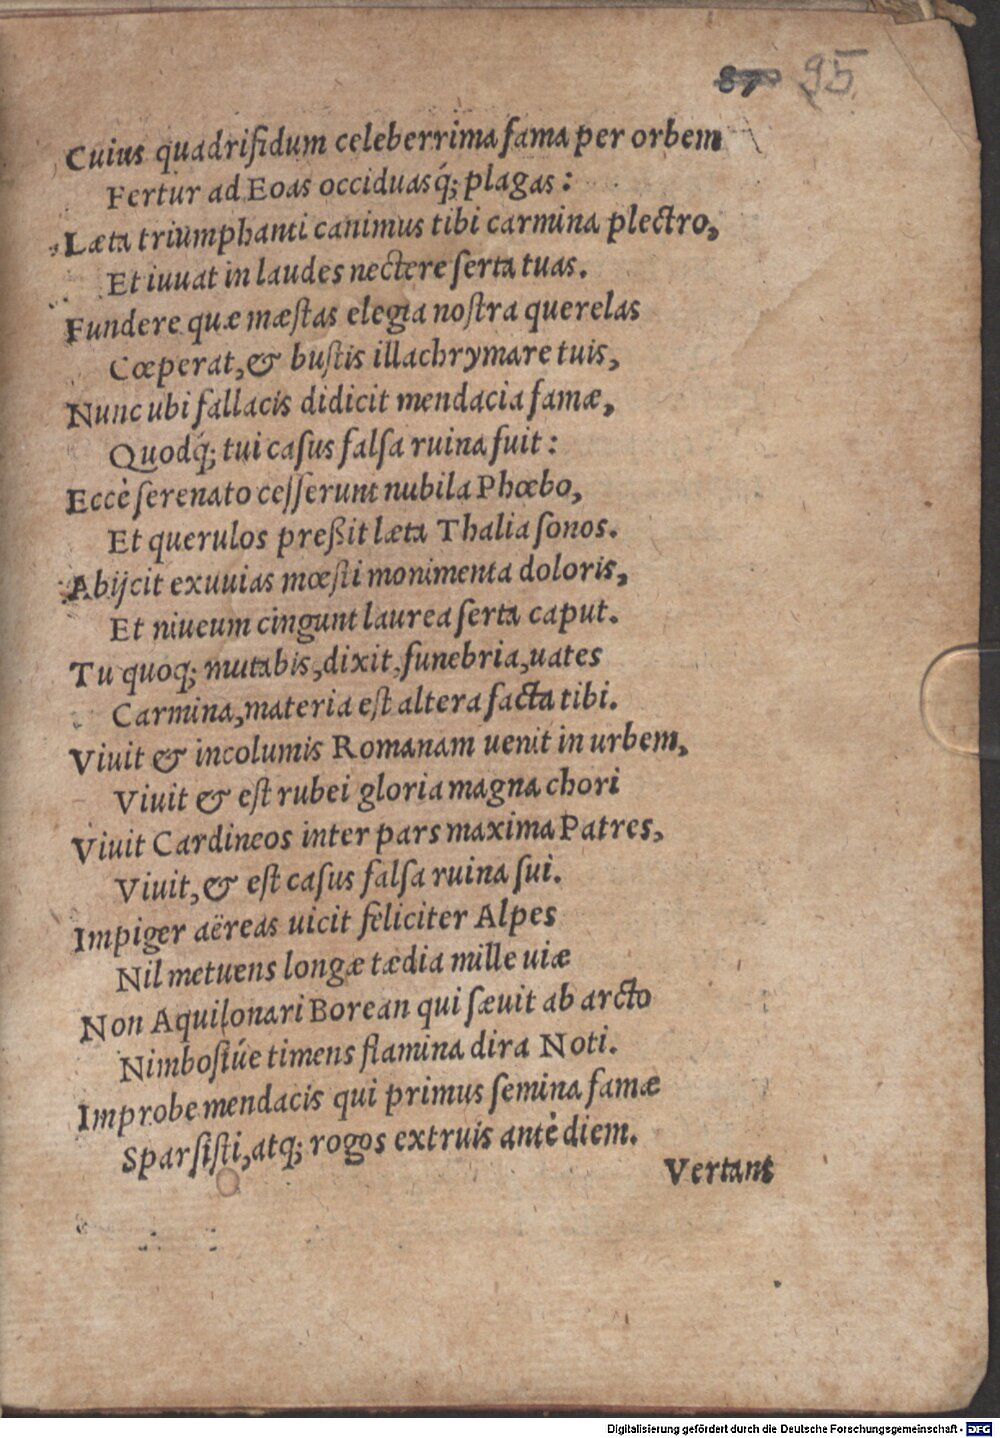 87 95
Cuius quadrifidum celeberrima fama per orbem
Fertur ad Eoas occiduasq́; plagas:
Læta triumphanti canimus tibi carmina plectro,
Et iuuat in laudes nectere ſerta tuas.
Fundere quæ mæſtas elegia noſtra querelas
Cœperat, & buſtis illachrymare tuis,
Nunc ubi fallacis didicit mendacia famæ,
Quodq́; tui caſus falſa ruina fuit:
Eccè ſerenato ceſſerunt nubila Phœbo,
Et querulos preßit læta Thalia ſonos.
Abijcit exuuias mœſti monimenta doloris,
Et niueum cingunt laurea ſerta caput.
Tu quoq; mutabis, dixit, funebria, uates
Carmina, materia eſt altera facta tibi.
Viuit & incolumis Romanam uenit in urbem,
Viuit & eſt rubei gloria magna chori
Viuit Cardineos inter pars maxima Patres,
Viuit, & eſt caſus falſa ruina ſui.
Impiger aëreas uicit feliciter Alpes
Nil metuens longæ tædia mille uiæ
Non Aquilonari Borean qui ſæuit ab arcto
Nimboſiúe timens flamina dira Noti.
Improbe mendacis qui primus ſemina famæ
Sparſiſti, atq; rogos extruis antè diem.
Vertant
Digitalisierung gefördert durch die Deutsche Forschungsgemeinschaft - DFG